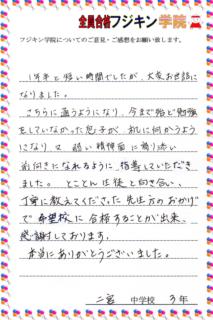 全員合格フジキン学院
フジキン学院についてのご意見・ご感想をお願い致します。
1年半と短い時間でしたが、大変お世話に
なりました。
こちらに通うようになり、今まで殆ど勉強
をしていなかった息子が、机に何かうよう
になり 又 弱い精神面に寄り添い
前向きになれるように 指導していただき
ました。とことん生徒と向き合い、
丁寧に教えてくださった先生方のおかげ
で 希望校に 合格することが出来、
感謝しております。
本当にありがとうございました。
二宮 中学校 3年